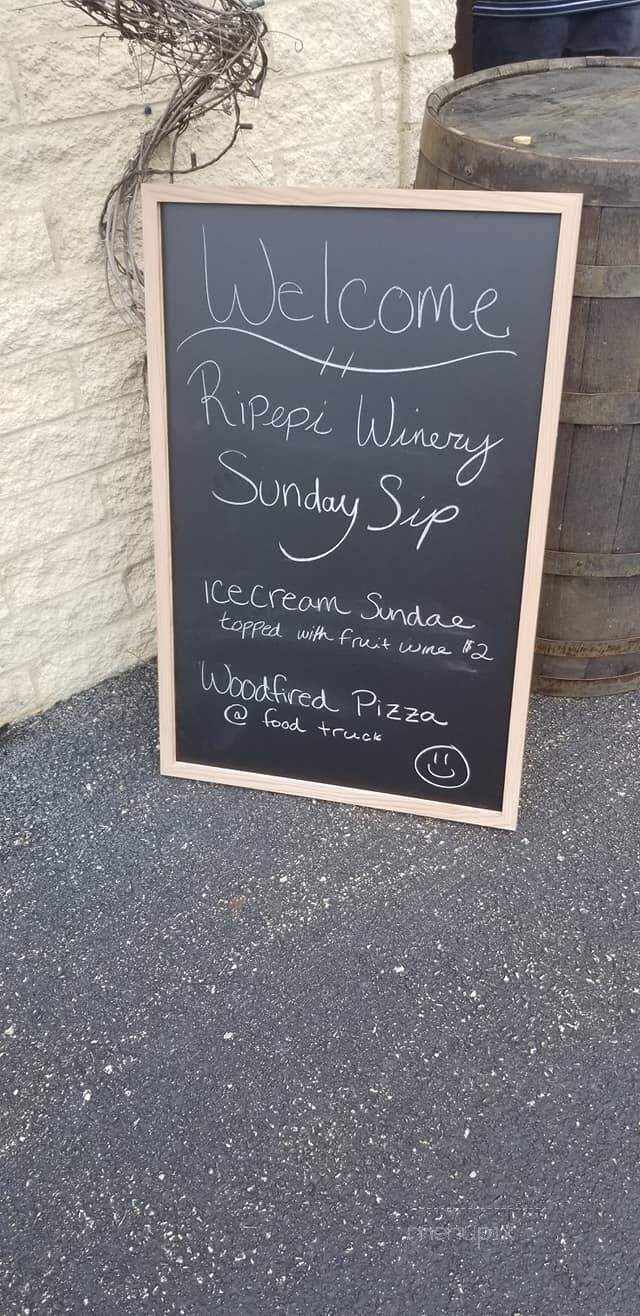 Welcome
Ripepi Winery
Sunday Sip
Icecream Sundae
topped with fruit wine $2
Woodfired Pizza
@ food truck
menupix